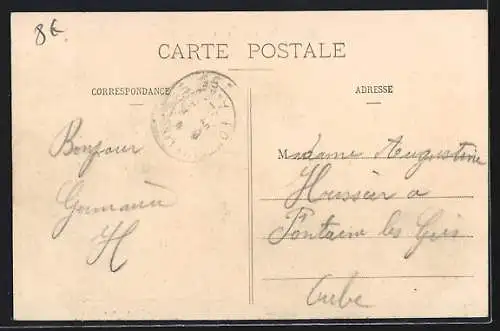 8€
CARTE POSTALE
CORRESPONDANCE
ADRESSE
Bonjour
Germaine
H
Madame Augustine
Houssier a
Fontaine les Grés
Aube